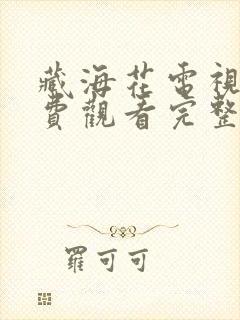 藏海花電視
費觀看完整
羅可可